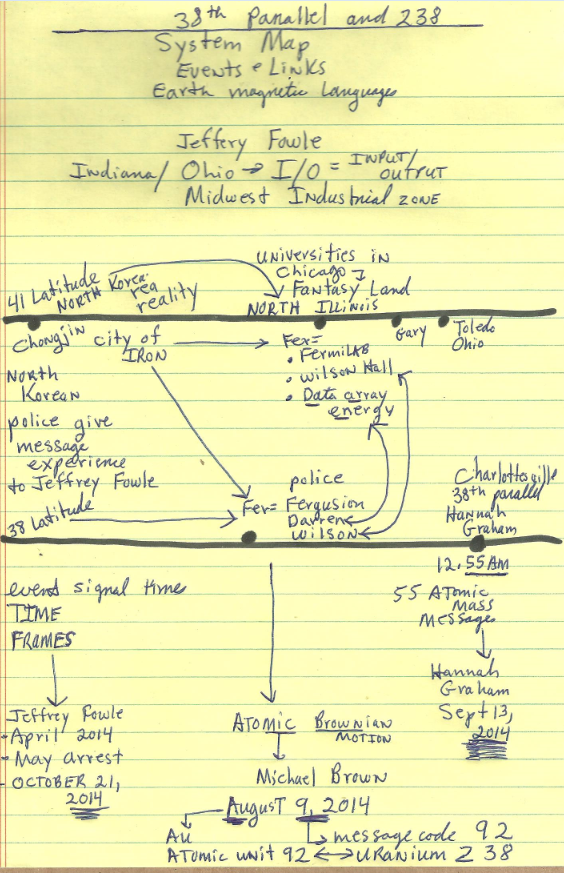 38th Parallel and 238
System Map
Events & Links
Earth magnetic Languages
Jeffery Fowle
Indiana/ Ohio → I/O = INPUT/OUTPUT
Midwest Industrial ZONE
41 Latitude
NORTH Korea:
rea
reality
universities in
Chicago
Fantasy Land
NORTH Illinois
Chongjin city of
IRON
Gary
Toledo
Ohio
Fer=
• FermiLAB
• Wilson Hall
• Data array
energy
North
Korean
police give
message
experience
to Jeffrey Fowle
38 Latitude
police
Fer= Fergusion
Darren
Wilson
Charlottesville
38th parallel
Hannah
Graham
12.55AM
55 Atomic
Mass
Messages
Hannah
Graham
Sept 13,
2014
event signal times
TIME
FRAMES
Jeffrey Fowle
- April 2014
- May arrest
- OCTOBER 21,
2014
ATOMIC Brownian
MOTION
Michael Brown
August 9, 2014
Au
message code 92
ATOMIC unit 92 ↔ URANIUM 238